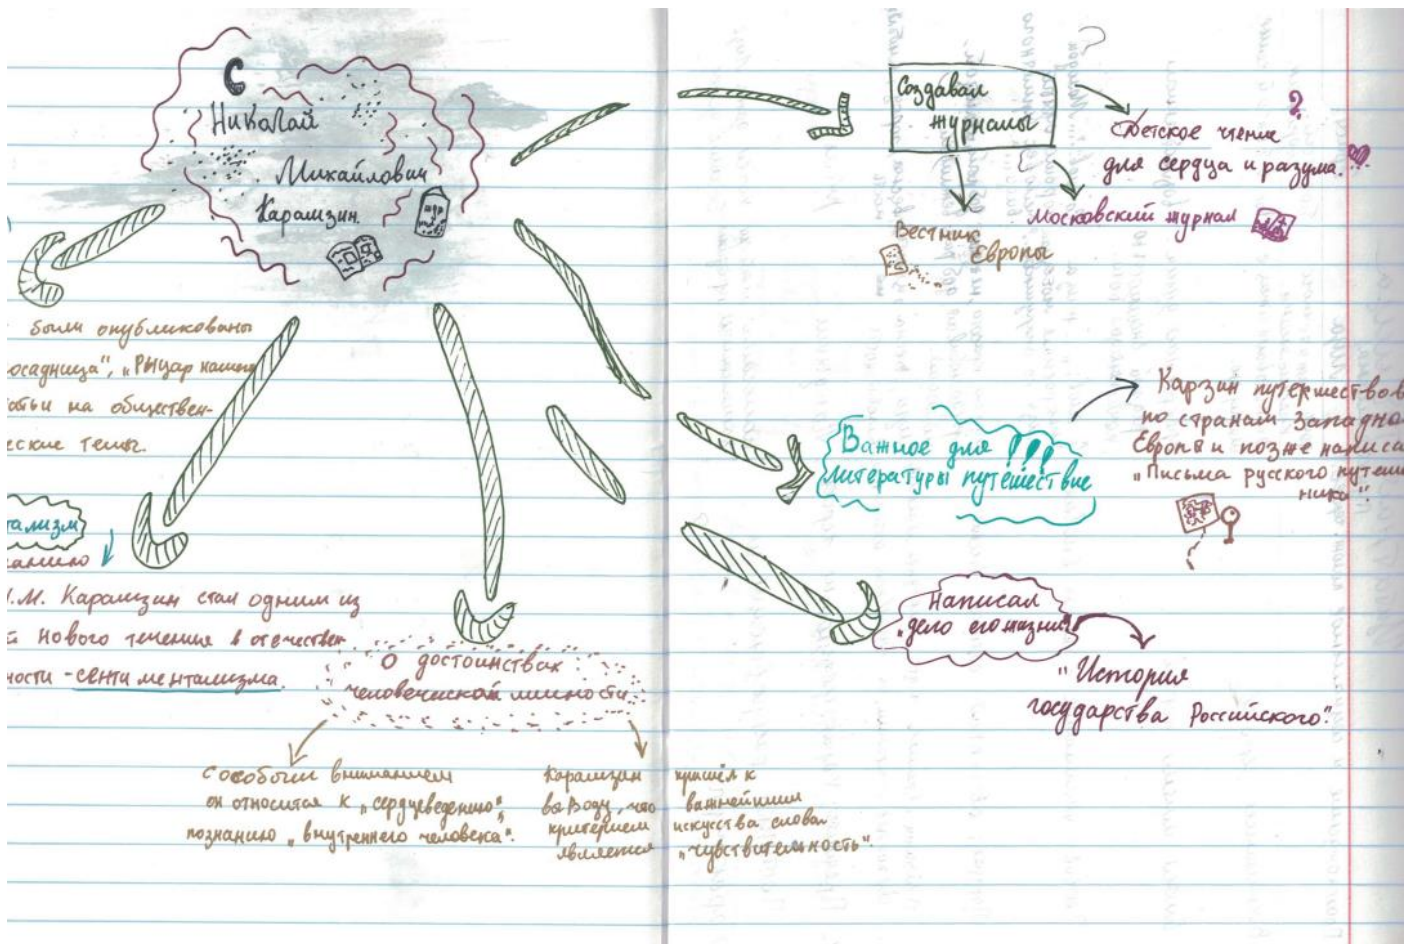 С
Николай
Михайлович
Карамзин.
были опубликованы
осадница", „Рыцар нашего
атьи на обществен-
еские темы.
тализм
.М. Карамзин стал одним из
нового течения в отечествен
ности - сентиментализма.
О достоинствах
человеческой личности
С особым вниманием
он относится к „сердцеведению",
познанию „внутреннего человека".
Карамзин пришёл к
выводу, что важнейшим
критерием искусства слова
является „чувствительность".
Создавал
журналы
Детское чтение
для сердца и разума.
Московский журнал
Вестник
Европы
Важное для !!!
литературы путешествие
Карзин путекшествов
по странам Западно
Европы и позже написа
„Письма русского путеш
ника".
Написал
„дело его жизни"
"История
государства Российского".